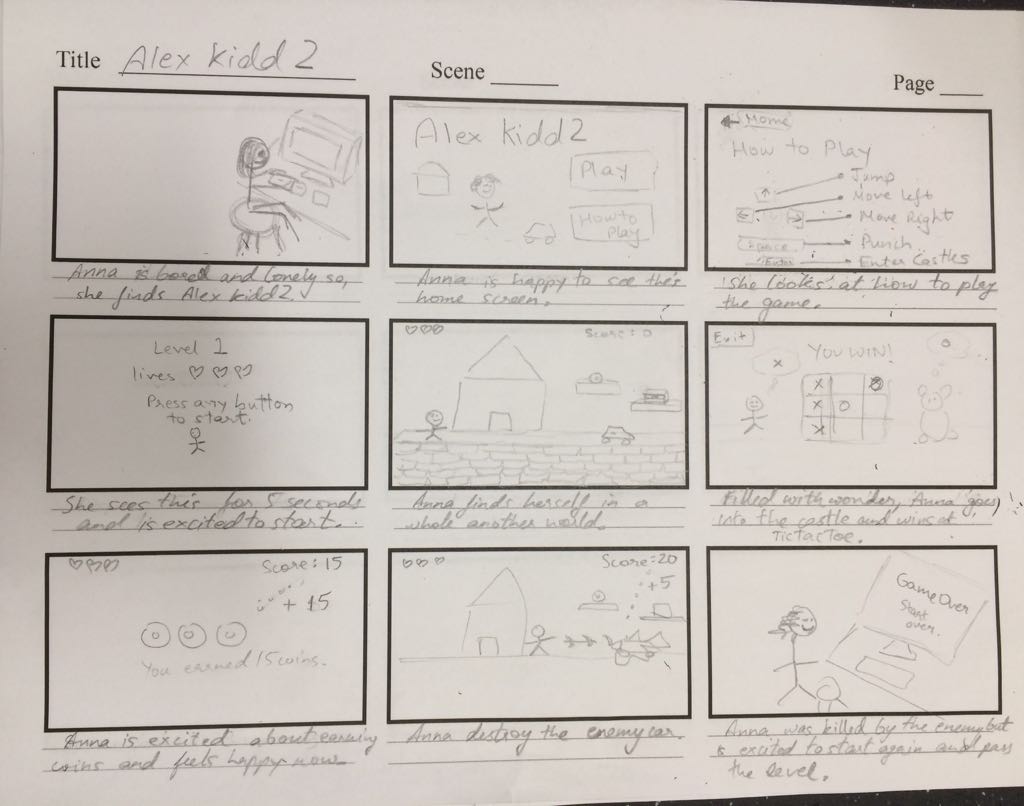 Title Alex Kidd 2
Scene
Page
Anna is bored and lonely so,
she finds Alex kidd2.
Alex Kidd 2
Play
How to
Play
Anna is happy to see this
home screen.
Home
How to Play
Jump
Move left
Move Right
Space Punch
Enter Enter Castles
She looks at how to play
the game.
Level 1
lives
Press any button
to start.
She sees this for 5 seconds
and is excited to start.
Score: 0
Anna finds herself in a
whole another world.
Exit
YOU WIN!
X O
X O
X
X
O
Filled with wonder, Anna goes
into the castle and wins at
TicTacToe.
Score: 15
+ 15
You earned 15 coins.
Anna is excited about earning
coins and feels happy now
Score: 20
+5
Anna destroy the enemy car.
Game Over
Start
over.
Anna was killed by the enemy but
is excited to start again and pass
the level.